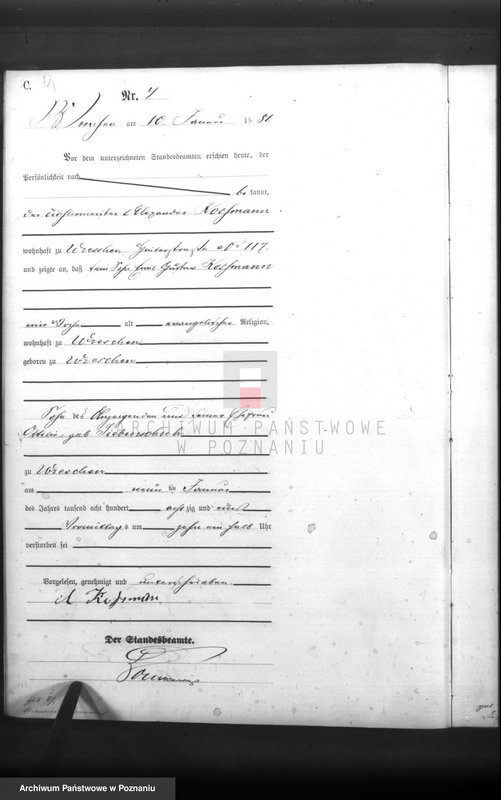 C.
Nr. 4
Wreschen am 10 Januar 1881.
Vor dem unterzeichneten Standesbeamten erschien heute, der
Persönlichkeit nach
be kannt,
der Alexander Kossmann
wohnhaft zu Wreschen, No 117.
und zeigte an, daß sein Sohn Gustav Kossmann
eine Woche alt evangelischer Religion,
wohnhaft zu Wreschen
geboren zu Wreschen
Sohn des Anzeigenden und seiner Ehefrau
geb.
zu Wreschen
am neun ten Januar
des Jahres tausend acht hundert acht zig und eins
Vormittags um zehn ein halb Uhr
verstorben sei
Vorgelesen, genehmigt und unterschrieben.
A Kossmann
Der Standesbeamte.
ARCHIWUM PAŃSTWOWE
W POZNANIU
Archiwum Państwowe w Poznaniu